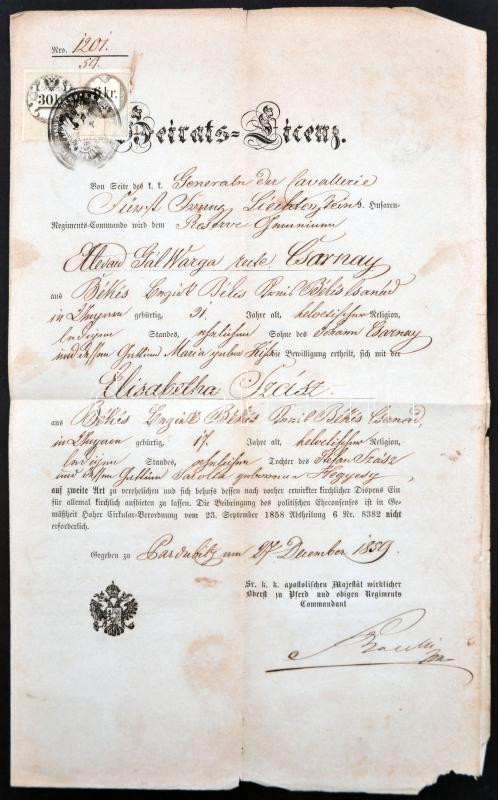 Nro. 1201.
59.
30 kr.
kr.
Heirats-Licenz.
Von Seite des k. k. Generaln der Cavallerie
Fürst Franz Liechtenstein Husaren-
Regiments-Commando wird dem Reserve
Gál Varga recte Csarnay
aus Békés Bezirk Békés Comit Békés Csanád
in Ungarn gebürtig, 31. Jahre alt, helvetischer Religion,
ledigen Standes, ehelichen Sohne des Johann Csarnay
und dessen Gattinn Maria geborne Kiss die Bewilligung ertheilt, sich mit der
Elisabetha Szász.
aus Békés Bezirk Békés Comit Békés Csanád,
in Ungarn gebürtig, 17. Jahre alt, helvetischer Religion,
ledigen Standes, ehelichen Tochter des Stefan Szász
und dessen Gattinn gebornen Hegyesy
auf zweite Art zu verehelichen und sich behufs dessen nach vorher erwirkter kirchlicher Dispens Ein
für allemal kirchlich aufbieten zu lassen. Die Beibringung des politischen Eheconsenses ist in Ge-
mäßheit Hoher Cirkular-Verordnung vom 23. September 1858 Abtheilung 6 Nr. 8382 nicht
erforderlich.
Gegeben zu Pardubitz am 27 December 1859.
Sr. k. k. apostolischen Majestät wirklicher
Oberst zu Pferd und obigen Regiments
Commandant